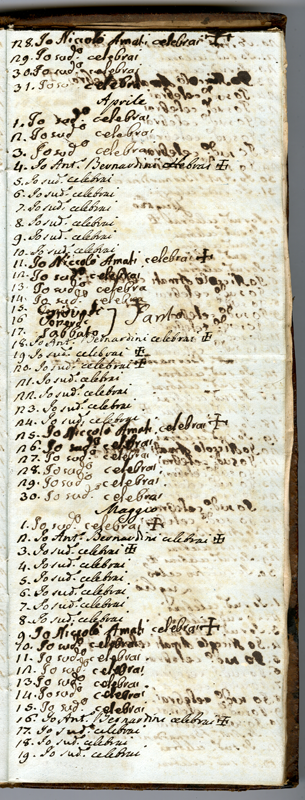 28. Io Niccolò Amati celebrai ✠
29. Io sud.º celebrai
30. Io sud.º celebrai
31. Io sud.º celebrai
Aprile
1. Io sud.º celebrai
2. Io sud.º celebrai
3. Io sud.º celebrai
4. Io Ant.º Bernardini celebrai ✠
5. Io sud.º celebrai
6. Io sud.º celebrai
7. Io sud.º celebrai
8. Io sud.º celebrai
9. Io sud.º celebrai
10. Io sud.º celebrai
11. Io Niccolò Amati celebrai ✠
12. Io sud.º celebrai
13. Io sud.º celebrai
14. Io sud.º celebrai
15. Giovedì
16. Venerdì } Santo
17. Sabbato
18. Io Ant.º Bernardini celebrai ✠
19. Io sud.º celebrai ✠
20. Io sud.º celebrai ✠
21. Io sud.º celebrai
22. Io sud.º celebrai
23. Io sud.º celebrai
24. Io sud.º celebrai
25. Io Niccolò Amati celebrai ✠
26. Io sud.º celebrai
27. Io sud.º celebrai
28. Io sud.º celebrai
29. Io sud.º celebrai
30. Io sud.º celebrai
Maggio
1. Io sud.º celebrai ✠
2. Io Ant.º Bernardini celebrai ✠
3. Io sud.º celebrai ✠
4. Io sud.º celebrai
5. Io sud.º celebrai
6. Io sud.º celebrai
7. Io sud.º celebrai
8. Io sud.º celebrai
9. Io Niccolò Amati celebrai ✠
10. Io sud.º celebrai
11. Io sud.º celebrai
12. Io sud.º celebrai
13. Io sud.º celebrai
14. Io sud.º celebrai
15. Io sud.º celebrai
16. Io Ant.º Bernardini celebrai ✠
17. Io sud.º celebrai
18. Io sud.º celebrai
19. Io sud.º celebrai